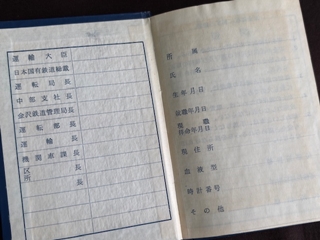 運輸大臣
日本国有鉄道総裁
運転局長
中部支社長
金沢鉄道管理局長
運転部長
運輸長
機関車課長
区長
所
所属
氏名
生年月日
就職年月日
職
任命年月日
現住所
血液型
時計番号
その他